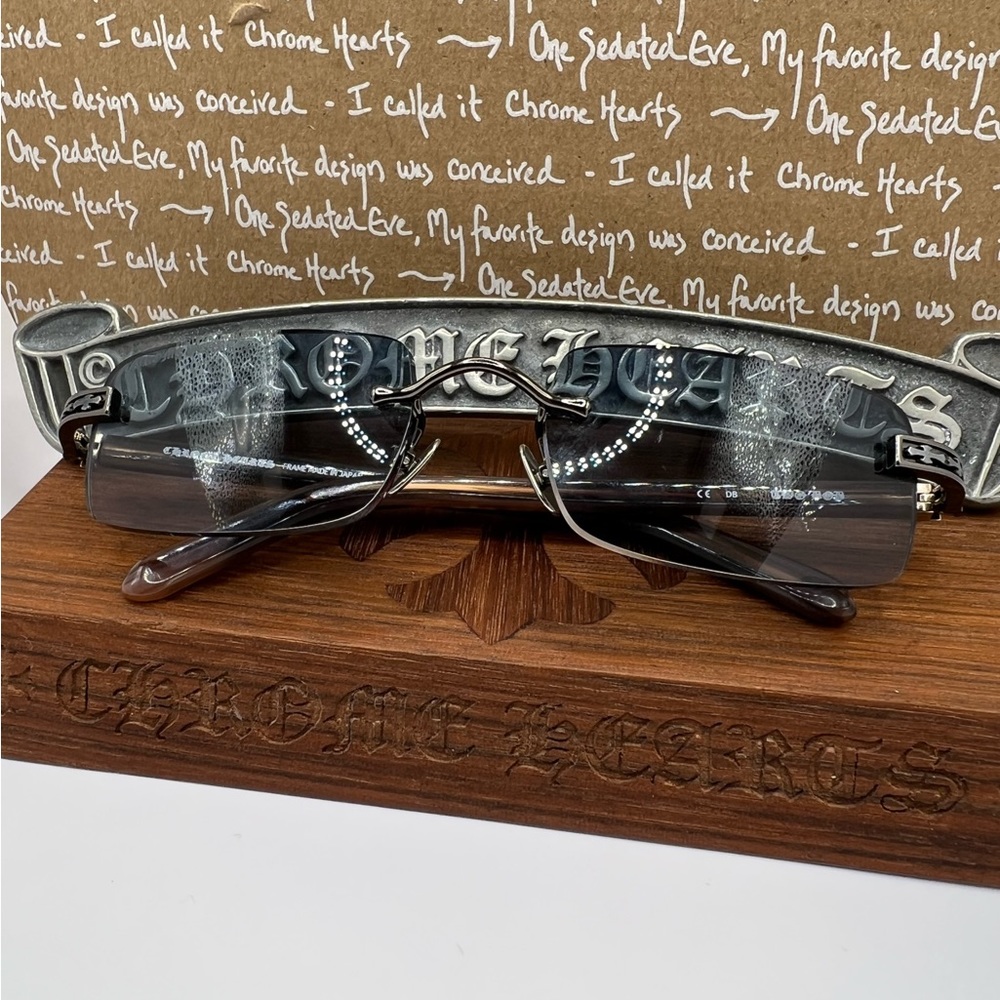 ceived - I called it Chrome Hearts → One Sedated Eve, My favorite design
favorite design was conceived - I called it Chrome Hearts → One Sedated Eve
One Sedated Eve, My favorite design was conceived - I called it Chrome Hearts
Chrome Hearts → One Sedated Eve, My favorite design was conceived - I called
ceived - I called it Chrome Hearts → One Sedated Eve, My favorite design was con
© CHROME HEARTS
CHROME HEARTS FRAME MADE IN JAPAN
CE DB
CHROME HEARTS